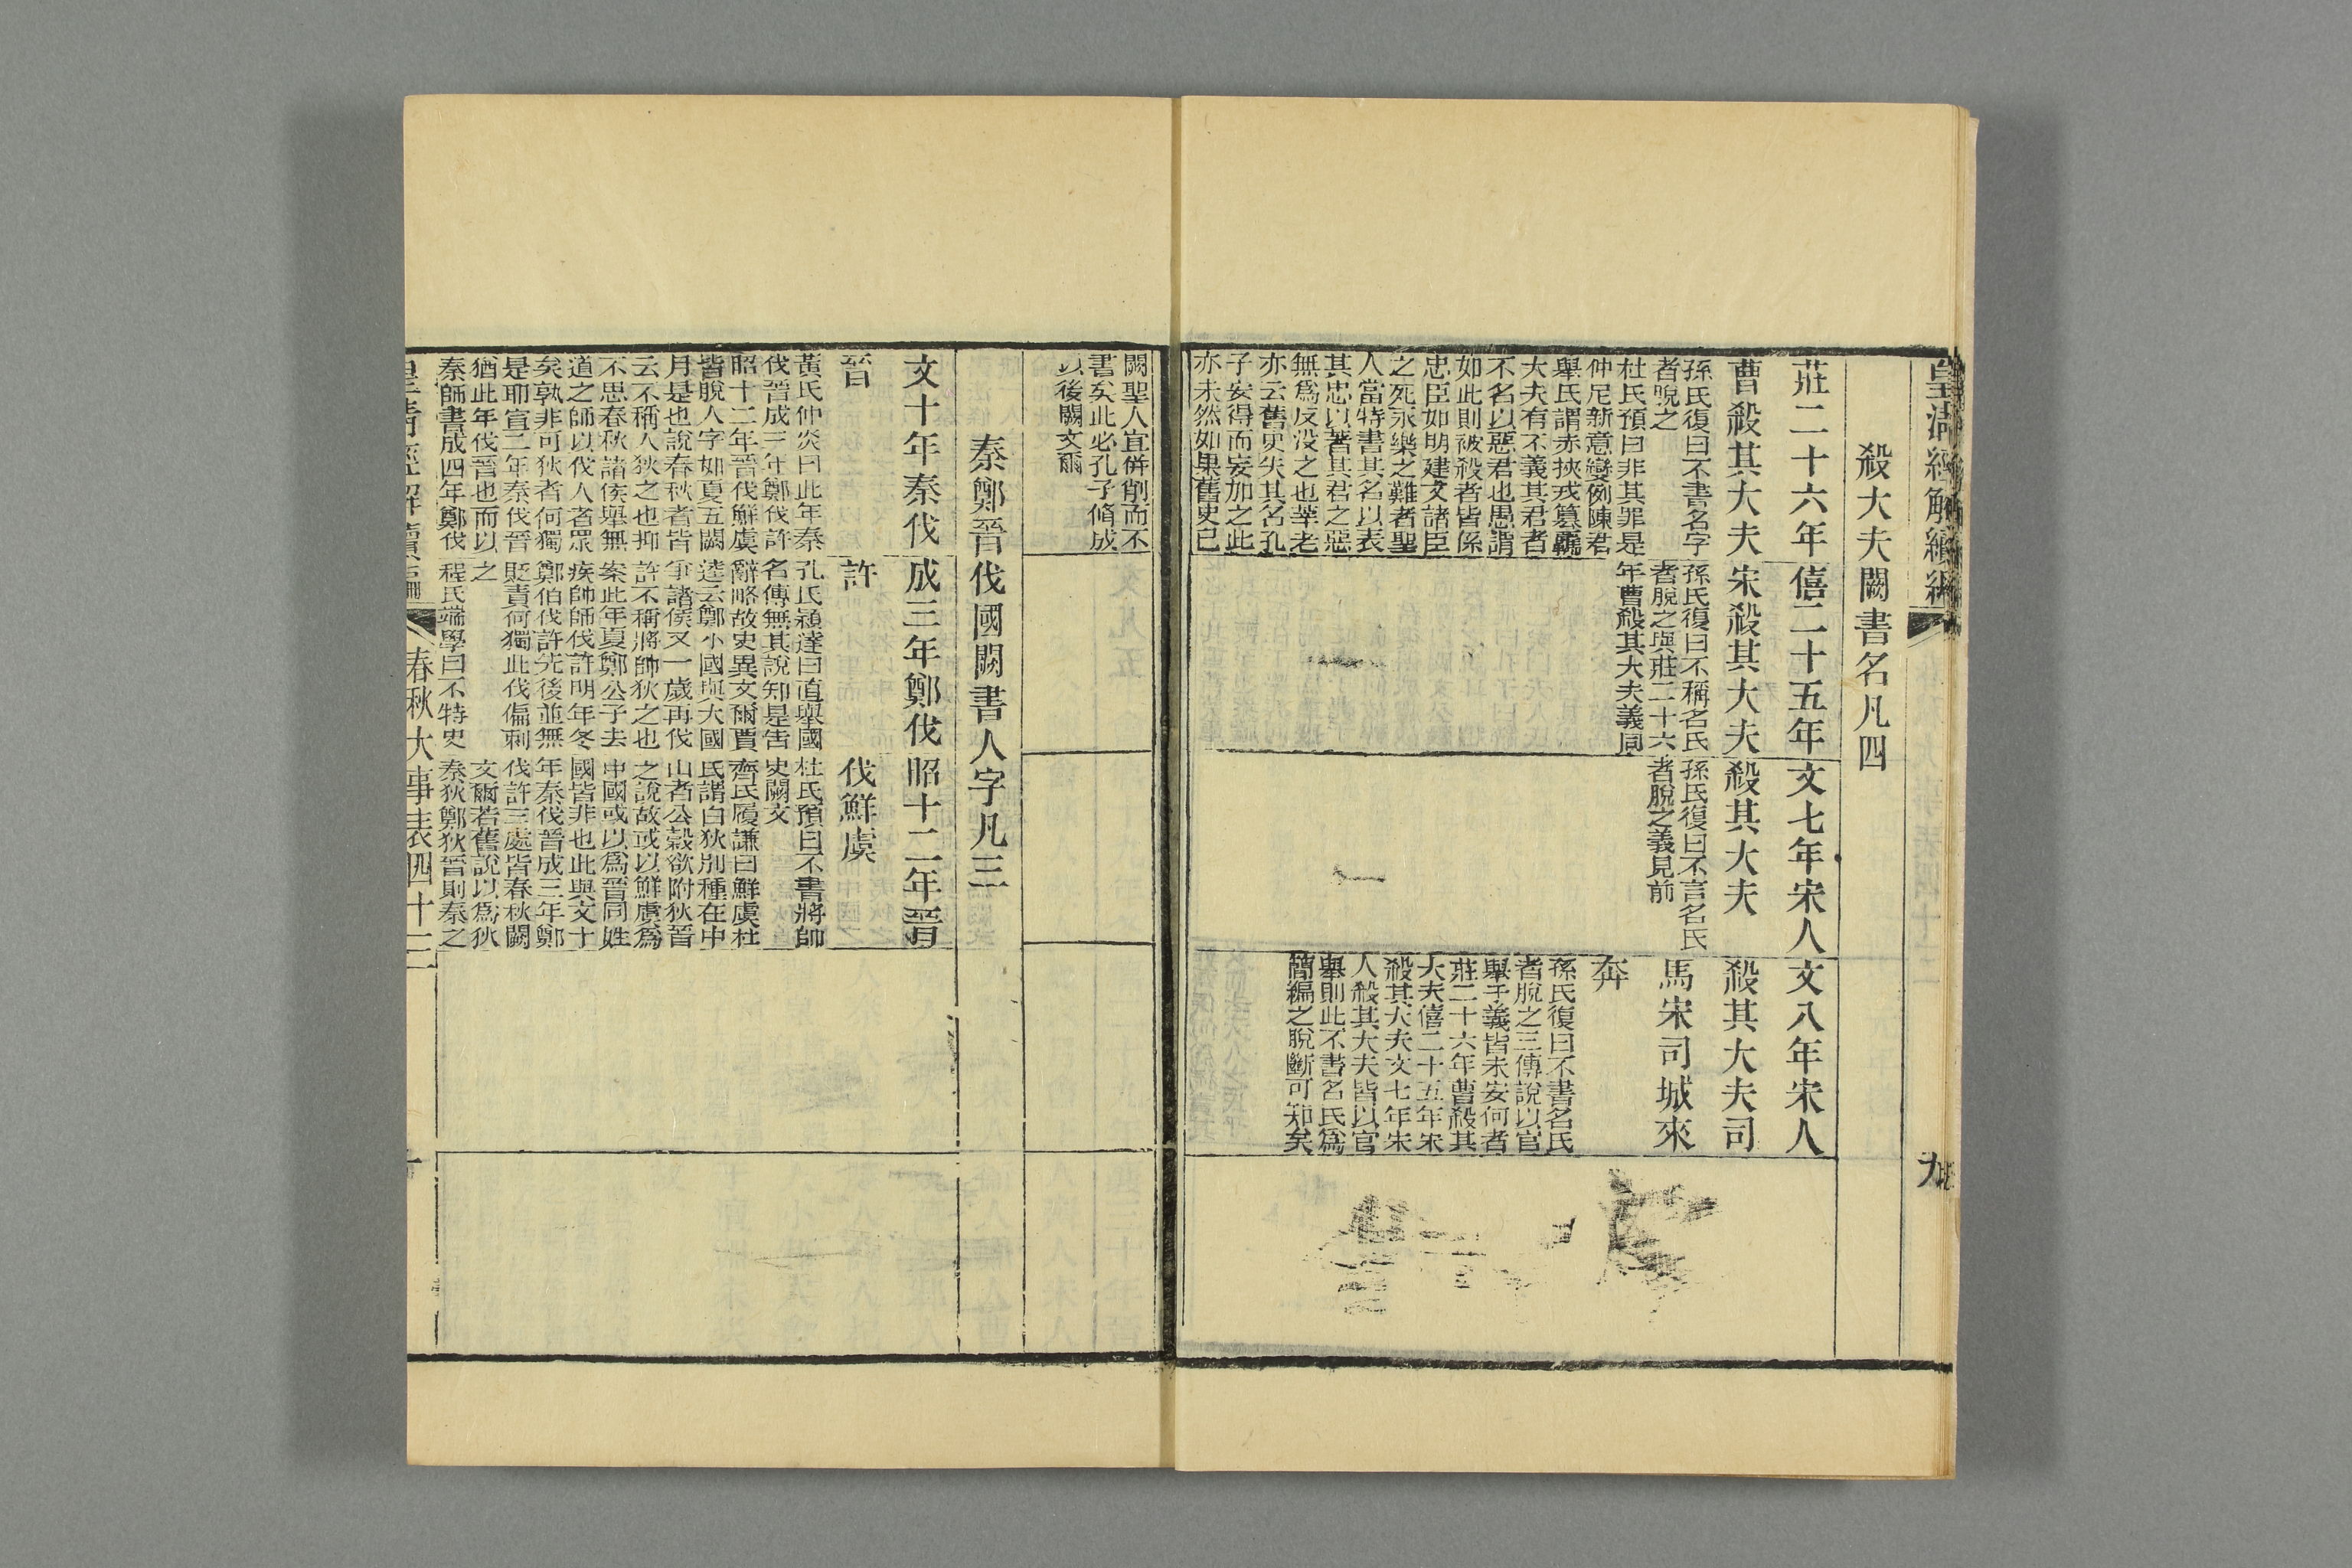 皇清經解續編
九
殺大夫闕書名凡四
莊二十六年
曹殺其大夫
孫氏復曰不書名字
者脫之
杜氏預曰非其罪是
仲尼新意變例陳君
舉氏謂赤挾戎篡羈
大夫有不義其君者
不名以惡君也愚謂
如此則被殺者皆係
忠臣如明建文諸臣
之死永樂之難者聖
人當特書其名以表
其忠以著其君之惡
無為反沒之也莘老
亦云舊史失其名孔
子安得而妄加之此
亦未然如果舊史已
僖二十五年
宋殺其大夫
孫氏復曰不稱名氏
者脫之與莊二十六
年曹殺其大夫義同
文七年宋人
殺其大夫
孫氏復曰不言名氏
者脫之義見前
文八年宋人
殺其大夫司
馬宋司城來
奔
孫氏復曰不書名氏
者脫之三傳說以官
舉于義皆未安何者
莊二十六年曹殺其
大夫僖二十五年宋
殺其大夫文七年宋
人殺其大夫皆以官
舉則此不書名氏為
簡編之脫斷可知矣
闕聖人宜併削而不
書矣此必孔子脩成
以後闕文爾
秦鄭晉伐國闕書人字凡三
文十年秦伐
晉
黃氏仲炎曰此年秦
伐晉成三年鄭伐許
昭十二年晉伐鮮虞
皆脫人字如夏五闕
月是也說春秋者皆
云不稱人狄之也抑
不思春秋諸侯舉無
道之師以伐人者眾
矣孰非可狄者何獨
是耶宣二年秦伐晉
猶此年伐晉也而以
秦師書成四年鄭伐
成三年鄭伐
許
孔氏穎達曰直舉國
名傳無其說知是告
辭略故史異文爾賈
逵云鄭小國與大國
爭諸侯又一歲再伐
許不稱將帥狄之也
案此年夏鄭公子去
疾帥師伐許明年冬
鄭伯伐許先後並無
貶責何獨此伐偏刺
之
程氏端學曰不特史
昭十二年晉
伐鮮虞
杜氏預曰不書將帥
史闕文
齊氏履謙曰鮮虞杜
氏謂白狄別種在中
山者公穀欲附狄晉
之說故或以鮮虞為
中國或以為晉同姓
國皆非也此與文十
年秦伐晉成三年鄭
伐許三處皆春秋闕
文爾若舊說以為狄
秦狄鄭狄晉則秦之
皇清經解續編
春秋大事表四十三
十